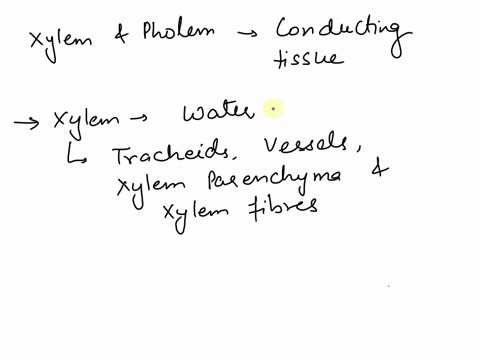 Xylem & Pholem → Conducting
tissue
→ Xylem → Water
↳ Tracheids, Vessels,
Xylem Parenchyma &
Xylem fibres